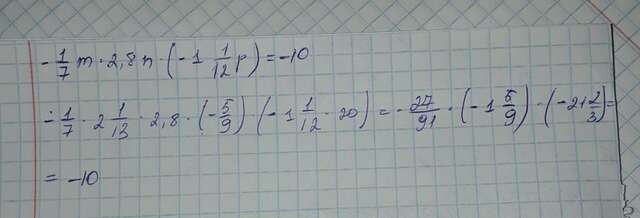 -1/7 m · 2,8n · (-1 1/12 p) = -10
-1/7 · 2 1/13 · 2,8 · (-5/9) (-1 1/12 · 20) = -27/91 · (-1 5/9) · (-21 2/3) =
= -10